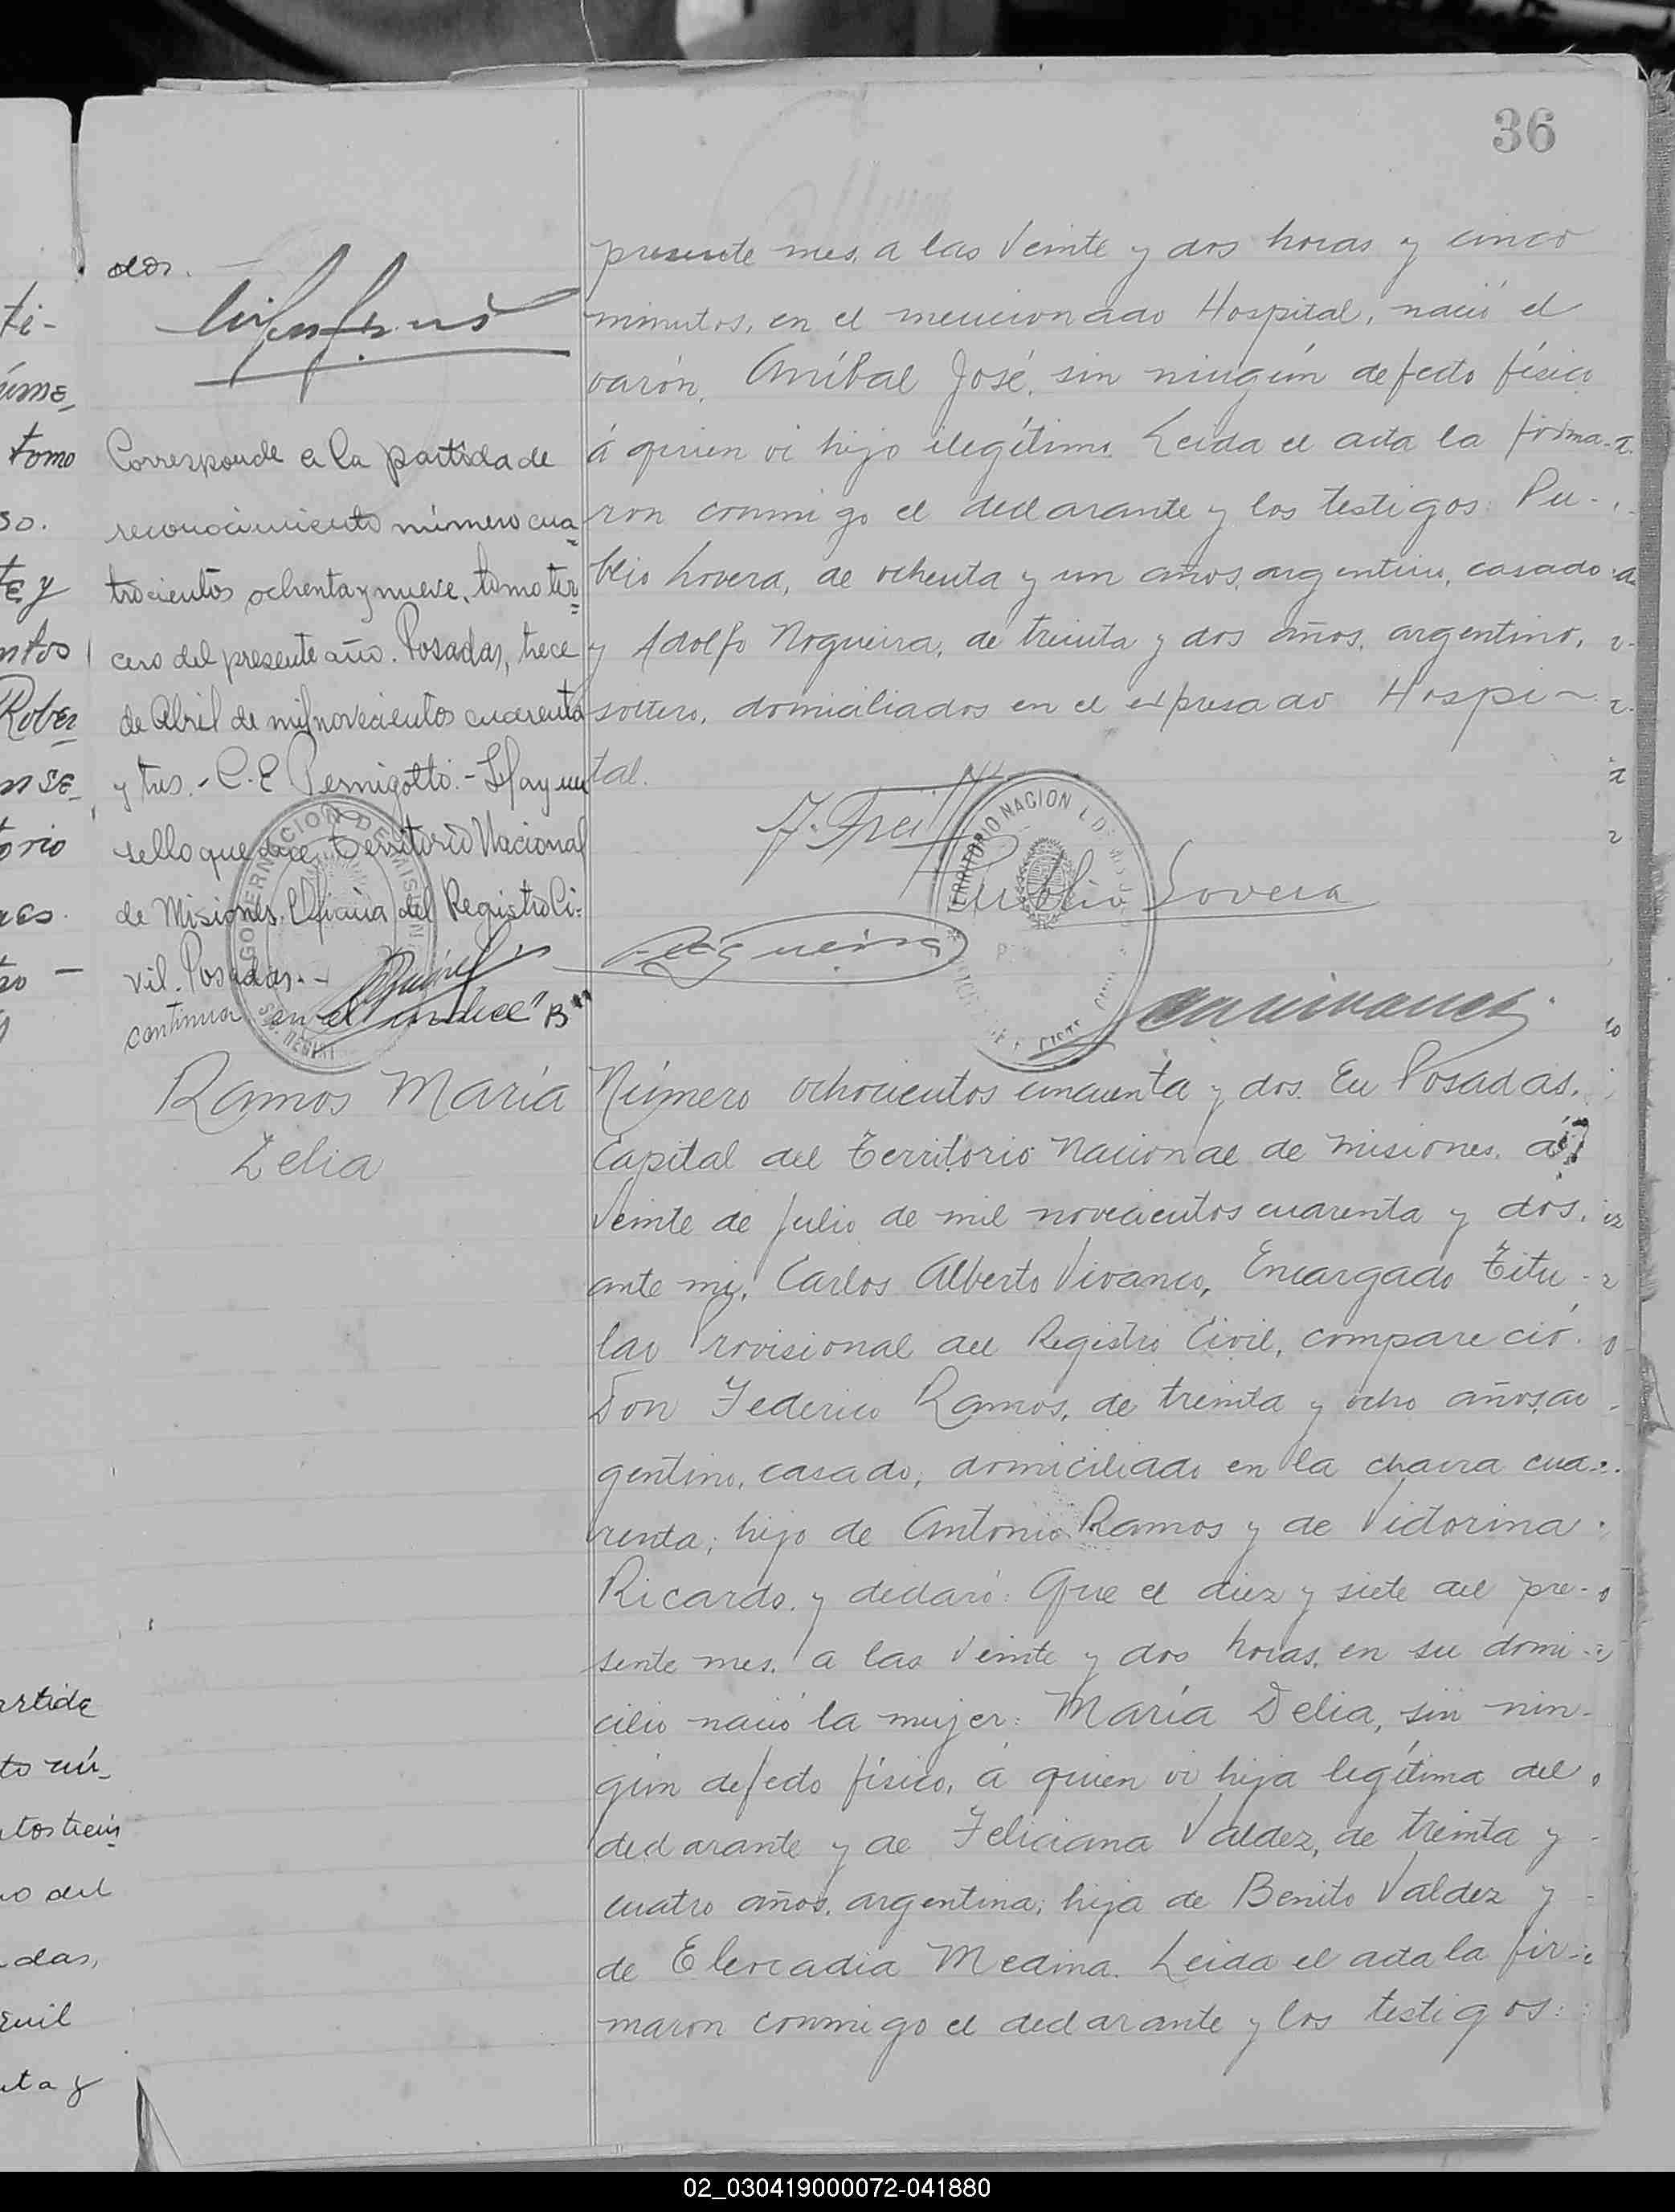 36
dos.
Corresponde a la partida de
reconocimiento número cua
trocientos ochenta y nueve, tomo ter
cero del presente año. Posadas, trece
de Abril de mil novecientos cuarenta
y tres.- C. E. Pernigotti.- Hay un
sello que dice Territorio Nacional
de Misiones. Oficina del Registro Ci-
vil. Posadas.-
continua en el indice "B"
presente mes, a las veinte y dos horas y cinco
minutos, en el mencionado Hospital, nació el
varón, Aníbal José, sin ningún defecto físico
á quien ví hijo ilegítimo. Leida el acta la firma-
ron conmigo el declarante y los testigos: Pu-
blio Lovera, de ochenta y un años, argentino, casado
y Adolfo Nogueira, de treinta y dos años, argentino,
soltero, domiciliados en el expresado Hospi-
tal.
Publio Lovera
GOBERNACION DE MISIONES
TERRITORIO NACIONAL DE MISIONES
Ramos María
Delia
Número ochocientos cincuenta y dos. En Posadas,
Capital del Territorio Nacional de Misiones, a
veinte de Julio de mil novecientos cuarenta y dos,
ante mi, Carlos Alberto Vivanco, Encargado Titu-
lar Provisional del Registro Civil, compareció
Don Federico Ramos, de treinta y ocho años, ar
gentino, casado, domiciliado en la chacra cua-
renta; hijo de Antonio Ramos y de Victorina
Ricardo, y declaró: Que el diez y siete del pre-
sente mes, a las veinte y dos horas, en su domi-
cilio nació la mujer: María Delia, sin nin-
gún defecto físico, á quien ví hija legítima del
declarante y de Feliciana Valdez, de treinta y
cuatro años, argentina; hija de Benito Valdez y
de Medina. Leida el acta la fir-
maron conmigo el declarante y los testigos:
02_030419000072-041880